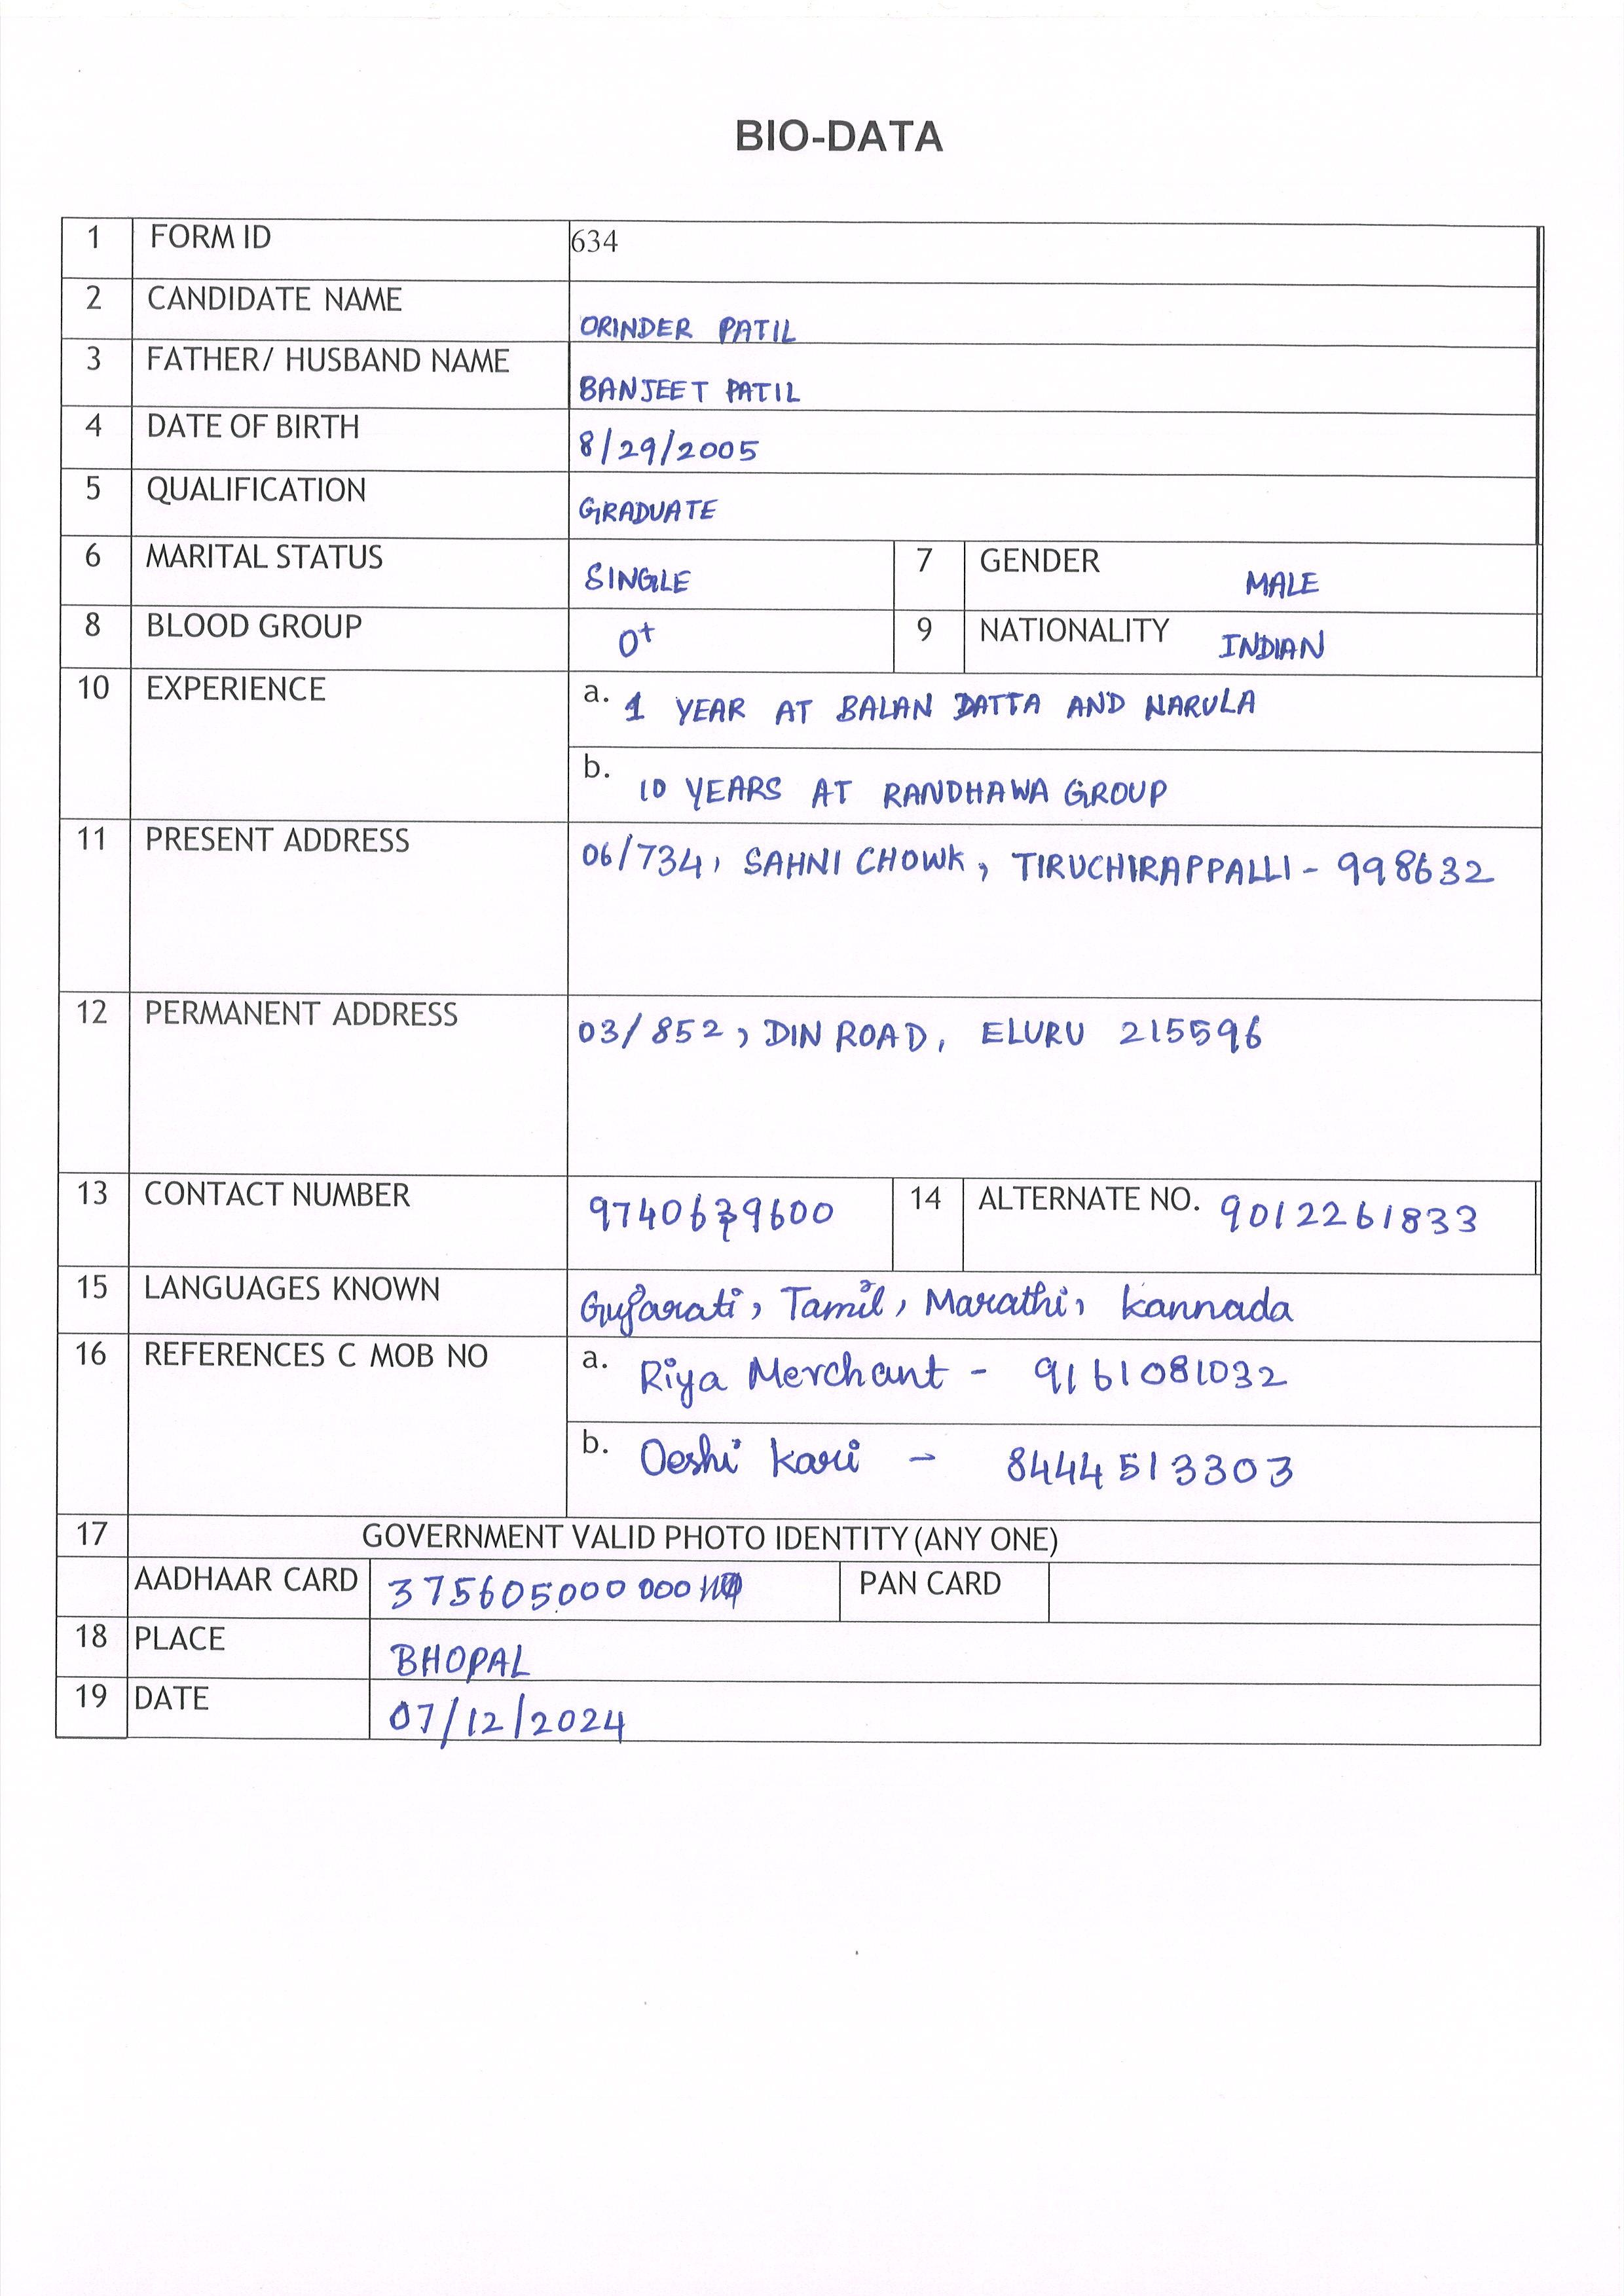 BIO-DATA
1 FORM ID 634
2 CANDIDATE NAME ORINDER PATIL
3 FATHER/ HUSBAND NAME BANJEET PATIL
4 DATE OF BIRTH 8/29/2005
5 QUALIFICATION GRADUATE
6 MARITAL STATUS SINGLE 7 GENDER MALE
8 BLOOD GROUP O+ 9 NATIONALITY INDIAN
10 EXPERIENCE a. 1 YEAR AT BALAN DATTA AND NARULA
b. 10 YEARS AT RANDHAWA GROUP
11 PRESENT ADDRESS 06/734, SAHNI CHOWK, TIRUCHIRAPPALLI - 998632
12 PERMANENT ADDRESS 03/852, DIN ROAD, ELURU 215596
13 CONTACT NUMBER 14 ALTERNATE NO. 9012261833
15 LANGUAGES KNOWN Gujarati, Tamil, Marathi, kannada
16 REFERENCES C MOB NO a. Riya Merchant - 9161081032
b. Oeshi kari - 8444513303
17 GOVERNMENT VALID PHOTO IDENTITY (ANY ONE)
AADHAAR CARD 375605000000 PAN CARD
18 PLACE BHOPAL
19 DATE 07/12/2024